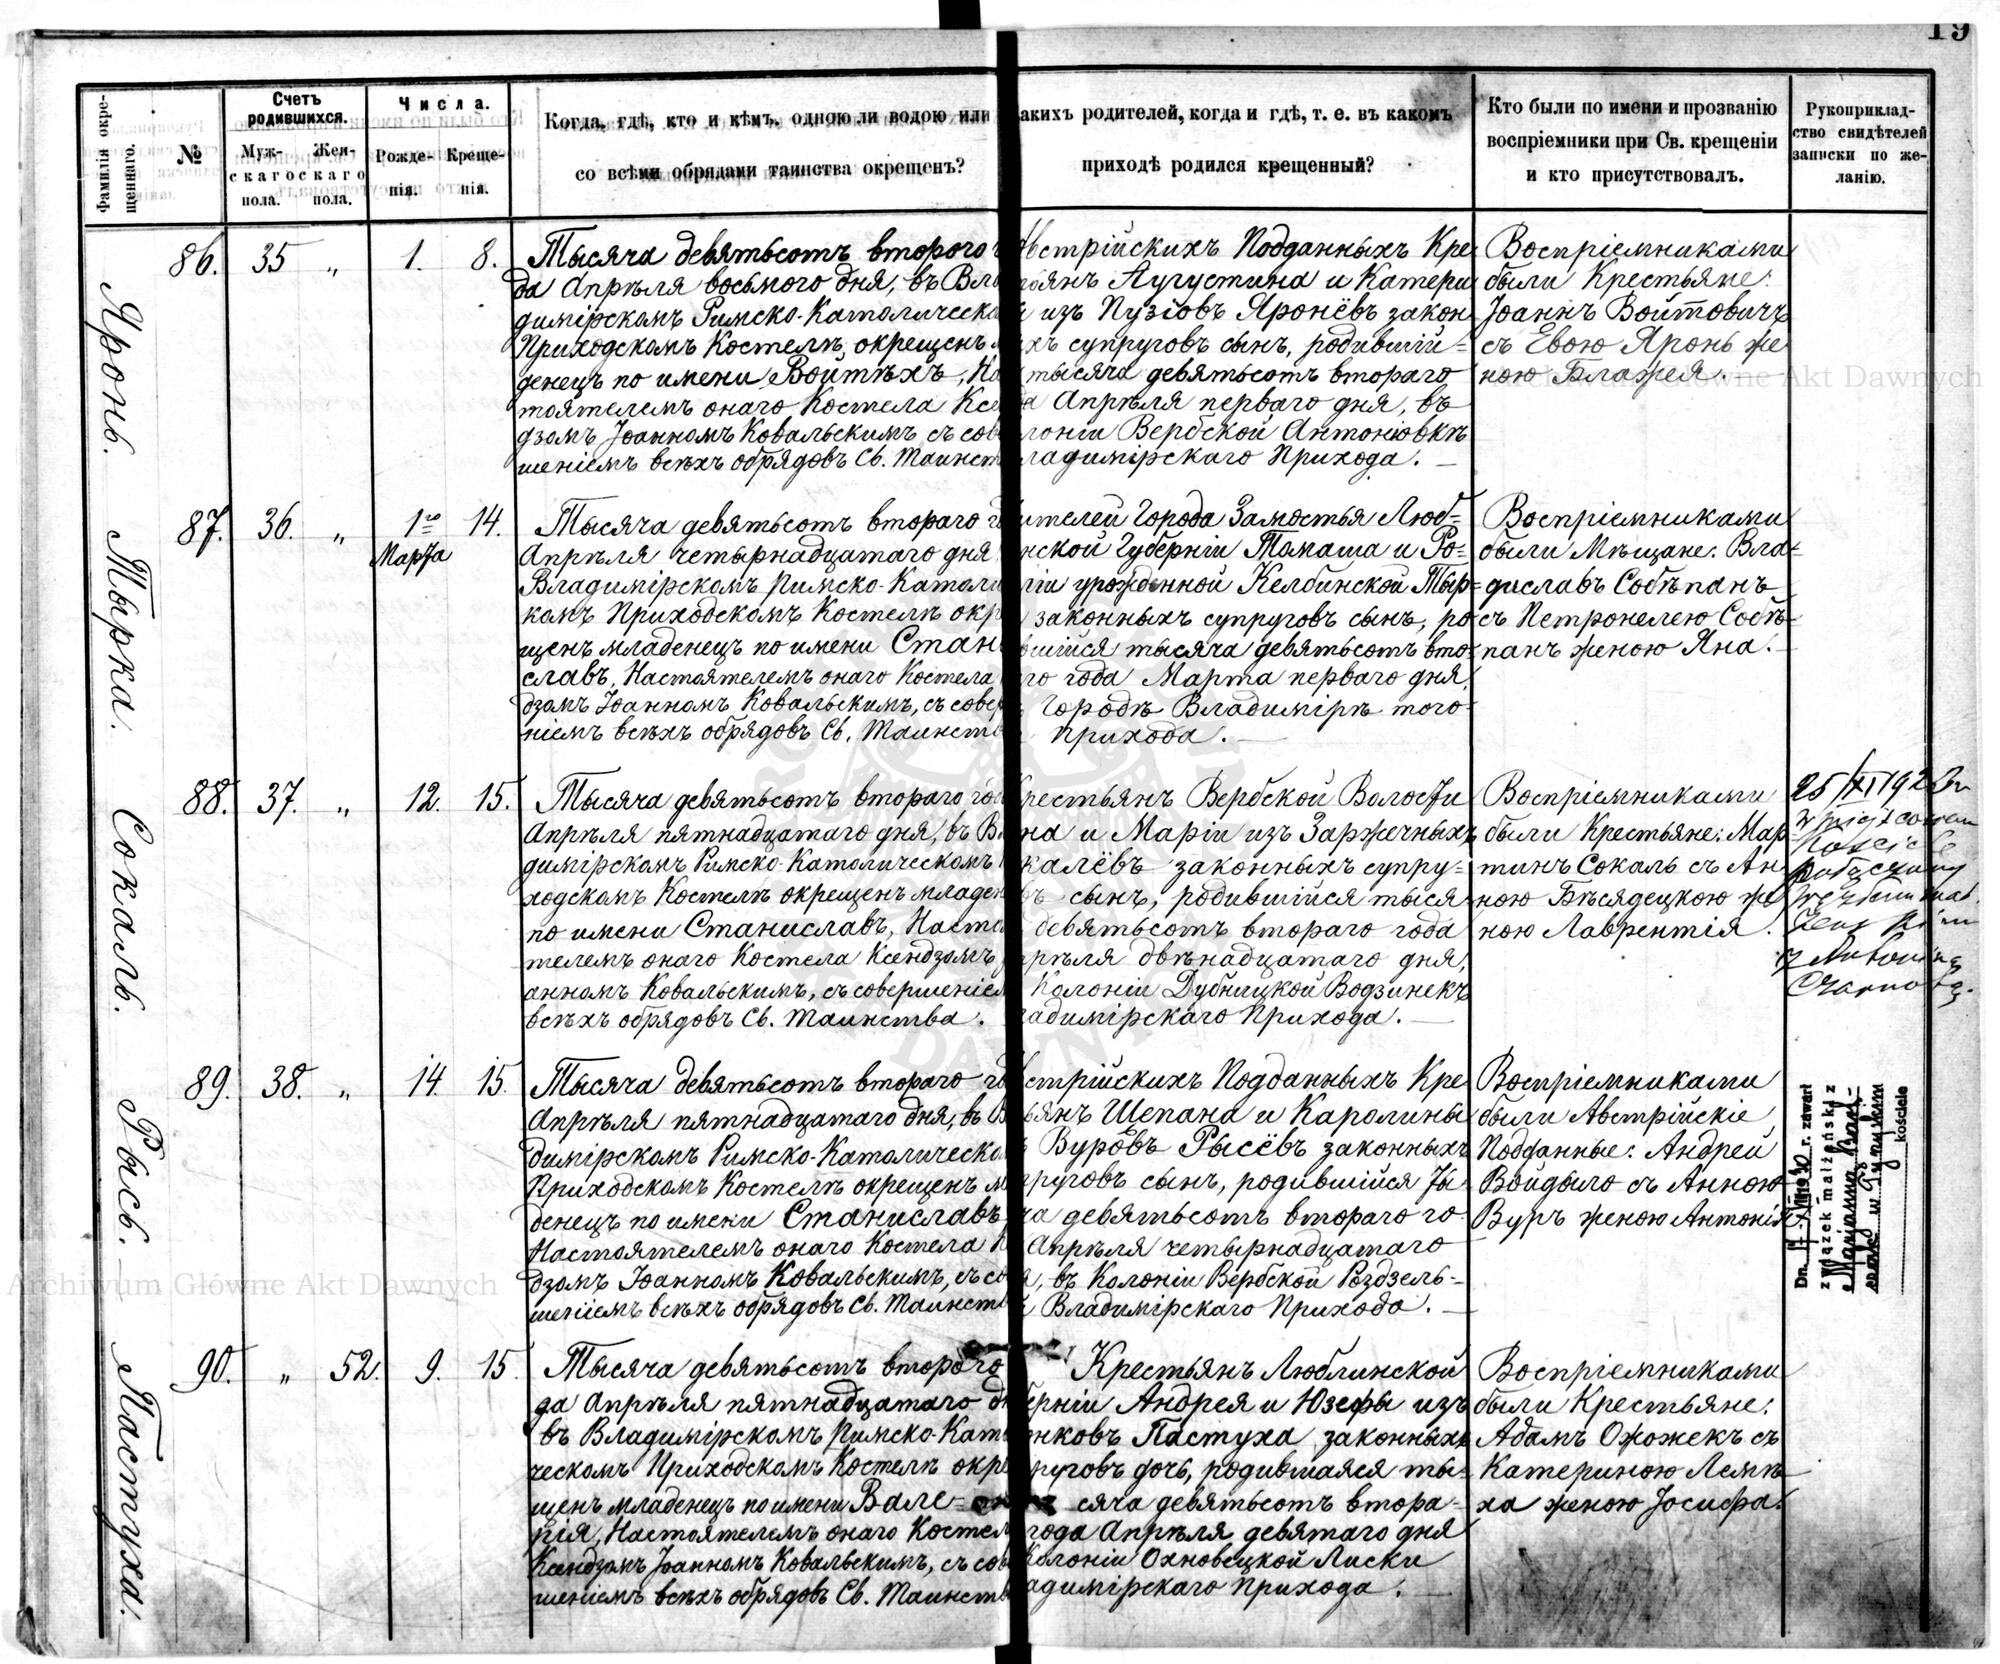 19
Фамилія окре-
щеннаго.
№
Счетъ
родившихся.
Муж-
скаго
пола.
Жен-
скаго
пола.
Числа.
Рожде-
нія.
Креще-
нія.
Когда, гдѣ, кто и кѣмъ, одною ли водою или
со всѣми обрядами таинства окрещенъ?
акихъ родителей, когда и гдѣ, т. е. въ какомъ
приходѣ родился крещенный?
Кто были по имени и прозванію
воспріемники при Св. крещеніи
и кто присутствовалъ.
Рукоприклад-
ство свидѣтелей
записки по же-
ланію.
Яронь.
86. 35 „ 1. 8.
Тысяча девятьсотъ второго г
да Апрѣля восьмого дня, въ Вла
димірскомъ Римско-Католическо
Приходскомъ Костелѣ, окрещенъ м
денецъ по имени Войтѣхъ, На
тоятелемъ онаго Костела Ксе
дзомъ Іоанномъ Ковальскимъ, съ сов
шеніемъ всѣхъ обрядовъ Св. Таинст
Австрійскихъ Подданныхъ Кре
тьянъ Аугустина и Катери
ы изъ Пузіовъ Яронёвъ закон
ыхъ супруговъ сынъ, родившій=
тысяча девятьсотъ втораго
да Апрѣля перваго дня, въ
лоніи Вербской Антоніовкѣ
ладимірскаго Прихода. —
Воспріемниками
были Крестьяне:
Іоаннъ Войтовичъ
съ Евою Яронь же
ною Блажея. —
Тырка.
87. 36. „ 1го 14.
Марта
Тысяча девятьсотъ втораго г
Апрѣля четырнадцатаго дня
Владимірскомъ Римско-Католи
комъ Приходскомъ Костелѣ окр
щенъ младенецъ по имени Стан
славъ, Настоятелемъ онаго Костела
дзомъ Іоанномъ Ковальскимъ, съ совер
ніемъ всѣхъ обрядовъ Св. Таинств
ителей Города Замостья Люб=
нской Губерніи Томаша и Ро=
ліи урожденной Келбинской Тыр=
законныхъ супруговъ сынъ, ро
вшійся тысяча девятьсотъ вто=
го года Марта перваго дня,
Городѣ Владимірѣ того
прихода. —
Воспріемниками
были Мѣщане: Вла=
диславъ Собѣпанъ
съ Петронелею Собѣ=
панъ женою Яна. —
Сокаль.
88. 37. „ 12. 15.
Тысяча девятьсотъ втораго год
Апрѣля пятнадцатаго дня, въ Вл
димірскомъ Римско-Католическомъ
ходскомъ Костелѣ окрещенъ младен
по имени Станиславъ, Насто
телемъ онаго Костела Ксендзомъ
анномъ Ковальскимъ, съ совершеніем
всѣхъ обрядовъ Св. Таинства.
Крестьянъ Вербской Волости
на и Маріи изъ Заржечныхъ
калёвъ законныхъ супру=
въ сынъ, родившійся тыся
девятьсотъ втораго года
прѣля двѣнадцатаго дня,
Колоніи Дубницкой Водзинекъ
ладимірскаго Прихода. —
Воспріемниками
были Крестьяне: Мар=
тинъ Сокаль съ Ан
ною Бѣсядецкою же
ною Лаврентія.
25/XI 192
w miejscowem
Kościele
z Antoniną
Рысь.
89. 38. „ 14. 15.
Тысяча девятьсотъ втораго го
Апрѣля пятнадцатаго дня, въ В
димірскомъ Римско-Католическо
Приходскомъ Костелѣ окрещенъ м
денецъ по имени Станиславъ
Настоятелемъ онаго Костела К
дзомъ Іоанномъ Ковальскимъ, съ со
шеніемъ всѣхъ обрядовъ Св. Таинств
встрійскихъ Подданныхъ Кре
тьянъ Щепана и Каролины
Вуровъ Рысёвъ законныхъ
пруговъ сынъ, родившійся ты
ча девятьсотъ втораго го
Апрѣля четырнадцатаго
я, въ Колоніи Вербской Роздзель=
Владимірскаго Прихода. —
Воспріемниками
были Австрійскіе
Подданные: Андрей
Войдыло съ Анною
Вуръ женою Антонія
Dn. 1930 r. zawarł
związek małżeński z
Marjanną
w tutejszym
kościele
Пастуха.
90. „ 52. 9. 15
Тысяча девятьсотъ второго
да Апрѣля пятнадцатаго дн
въ Владимірскомъ Римско-Като
ческомъ Приходскомъ Костелѣ окре
щенъ младенецъ по имени Вале=
рія, Настоятелемъ онаго Костел
Ксендзомъ Іоанномъ Ковальскимъ, съ сов
шеніемъ всѣхъ обрядовъ Св. Таинств
Крестьянъ Люблинской
берніи Андрея и Юзефы изъ
нковъ Пастуха законныхъ
пруговъ дочь, родившаяся ты=
сяча девятьсотъ втора=
года Апрѣля девятаго дня
Колоніи Охновецкой Лиски
адимірскаго Прихода.
Воспріемниками
были Крестьяне:
Адамъ Ожожекъ съ
Катериною Лемѣ
ха женою Іосифа.
Archiwum Główne Akt Dawnych
Archiwum Główne Akt Dawnych